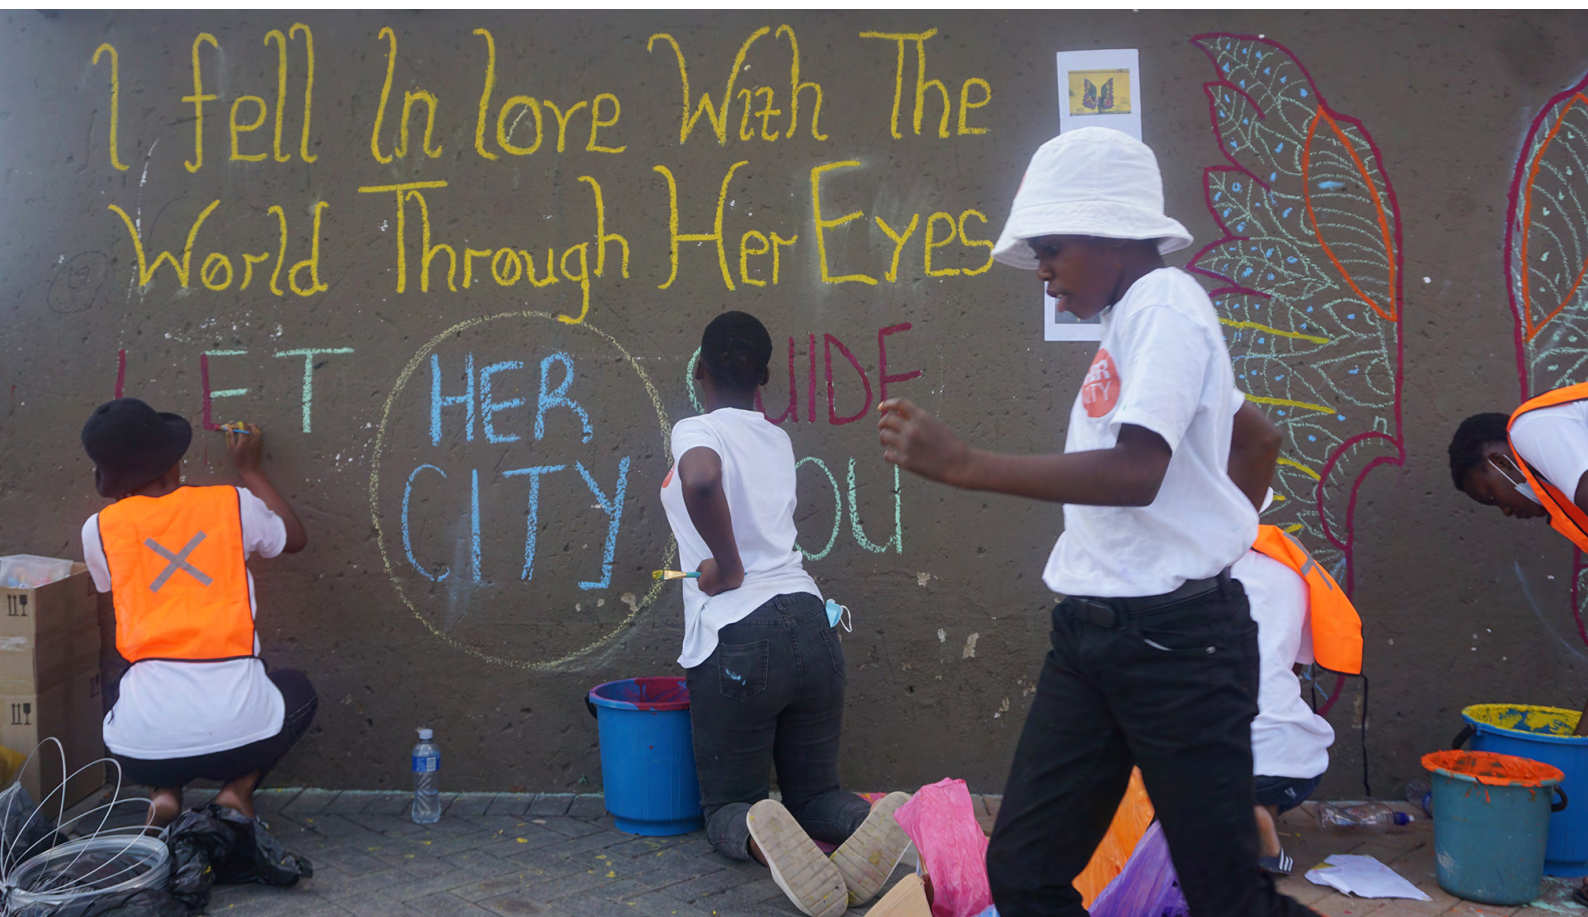 I fell In love With The
World Through Her Eyes
LET HER GUIDE
CITY OU
HER
CITY